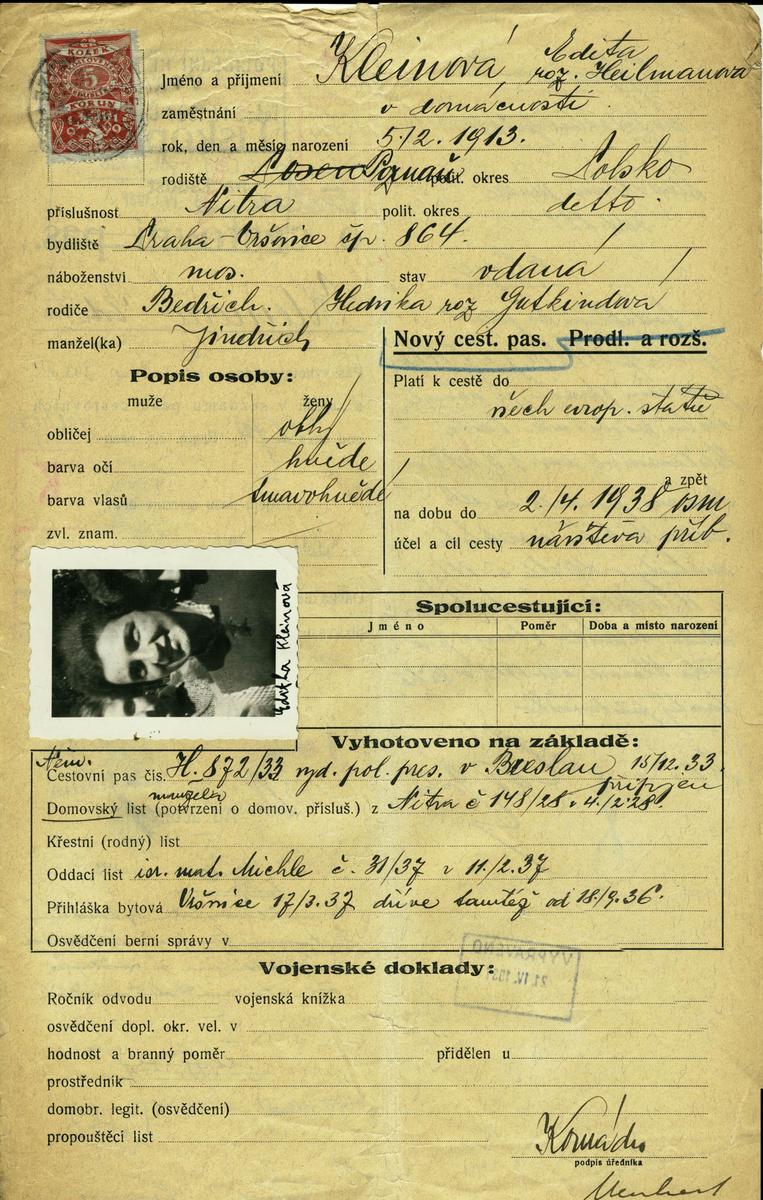 KOLEK
5
KORUN
Jméno a příjmení Kleinová, Edita
roz. Heilmanová
zaměstnání v domácnosti.
rok, den a měsíc narození 5/2. 1913.
rodiště Posen Poznaň polit. okres Polsko
příslušnost Nitra polit. okres detto.
bydliště Praha-Vršovice čp. 864.
náboženství mos. stav vdaná
rodiče Bedřich. Hedvika roz Gutkindova
manžel(ka) Jindřich
Nový cest. pas. Prodl. a rozš.
Popis osoby:
muže ženy
obličej
barva očí hnědé
barva vlasů tmavohnědé
zvl. znam.
Platí k cestě do
všech evrop. států
a zpět
na dobu do 2./4. 1938 osm
účel a cíl cesty návštěva příb.
Editha Kleinová
Spolucestující:
Jméno Poměr Doba a místo narození
Vyhotoveno na základě:
Něm.
Cestovní pas čís. H. 872/33 vyd. pol. pres. v Breslau 15/12. 33.
připojen
manžela
Domovský list (potvrzení o domov. přísluš.) z Nitra č 148/28 v 4./2.28.
Křestní (rodný) list
Oddací list isr. mat. Michle č. 31/37 v 11./2.37
Přihláška bytová Vršovice 17/3.37 dříve tamtéž od 18./9.36.
Osvědčení berní správy v
VYPRAVENO
21. IV. 193
Vojenské doklady:
Ročník odvodu vojenská knížka
osvědčení dopl. okr. vel. v
hodnost a branný poměr přidělen u
prostředník
domobr. legit. (osvědčení)
propouštěcí list
podpis úředníka